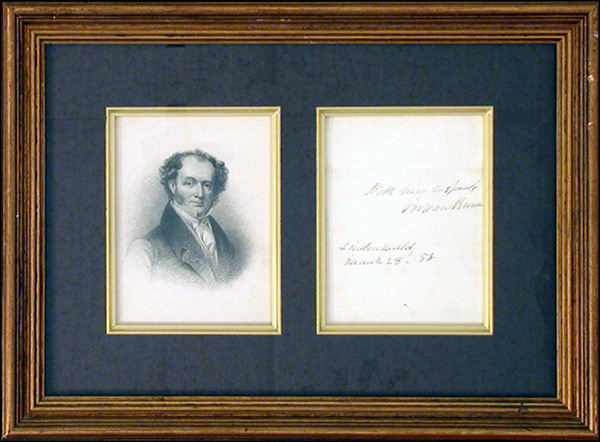 With my respects
M Van Buren
Lindenwald
March 28th 58